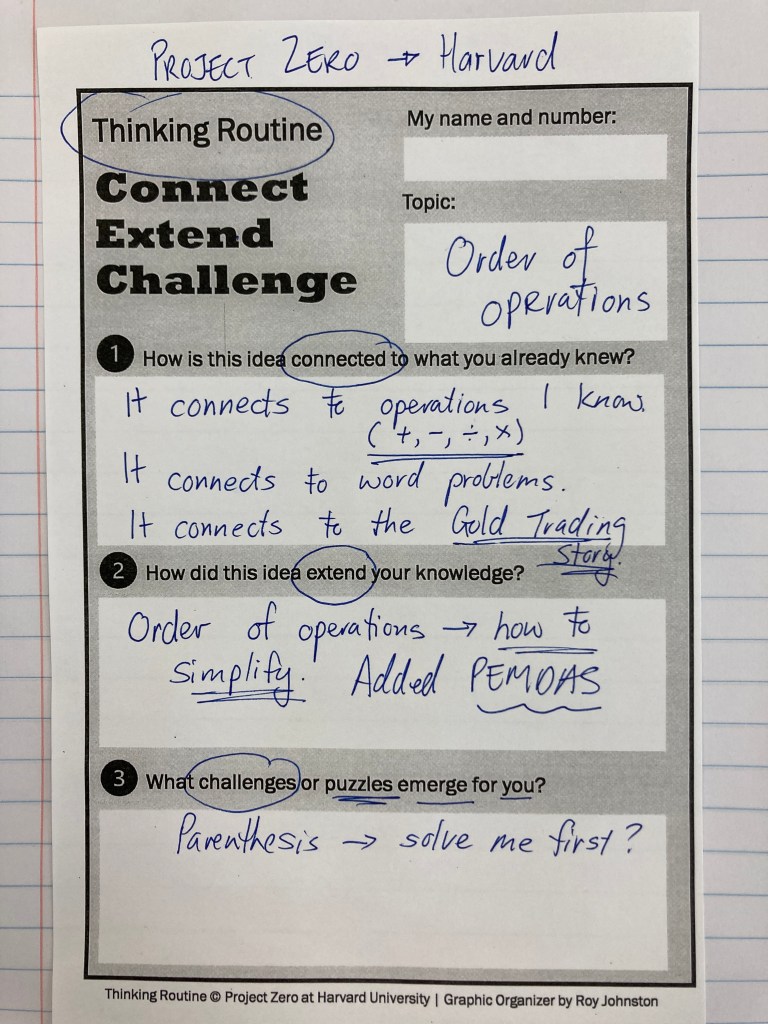 PROJECT ZERO → Harvard
Thinking Routine
Connect
Extend
Challenge
My name and number:
Topic:
Order of
operations
1 How is this idea connected to what you already knew?
It connects to operations I know.
(+, -, ÷, ×)
It connects to word problems.
It connects to the Gold Trading
Story.
2 How did this idea extend your knowledge?
Order of operations → how to
simplify. Added PEMDAS
3 What challenges or puzzles emerge for you?
Parenthesis → solve me first?
Thinking Routine © Project Zero at Harvard University | Graphic Organizer by Roy Johnston